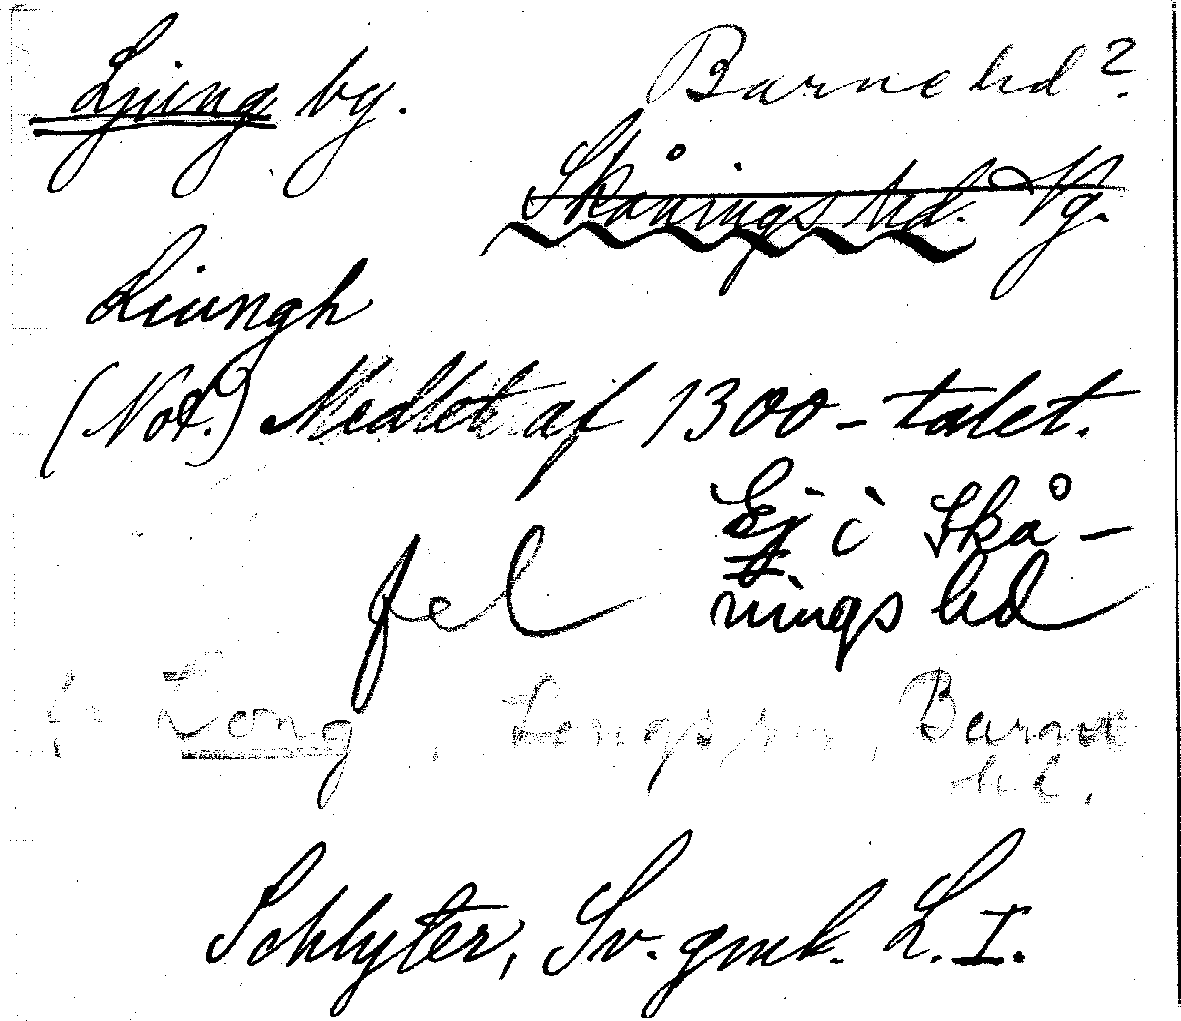 Ljung by. Barne hd?
Skånings hd. Vg.
Liungh
(Not.) Medlet af 1300-talet.
Ej i Skå-
fel nings hd
Long, Longs sn, Barne
hd.
Schlyter, Sv. gmk. L. I.